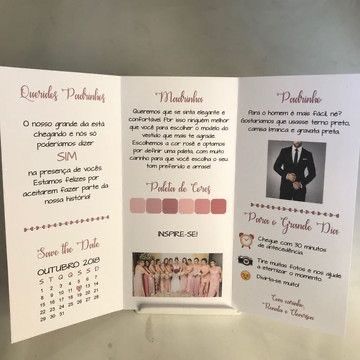 Queridos Padrinhos
O nosso grande dia está
chegando e nós só
poderíamos dizer
SIM
na presença de vocês.
Estamos felizes por
aceitarem fazer parte da
nossa história!
Save the Date
OUTUBRO 2018
S T Q Q S S D
1 2 3 4 5 6 7
8 9 10 11 12 13 14
15 16 17 18 19 20 21
22 23 24 25 26 27 28
29 30 31
Madrinha
Queremos que se sinta elegante e
confortável. Por isso ninguém melhor
que você para escolher o modelo do
vestido que mais te agrade.
Escolhemos a cor rosê e optamos
por definir uma paleta, com muito
carinho para que você escolha o seu
tom preferido e arrase!
Paleta de Cores
INSPIRE-SE!
Padrinho
Para o homem é mais fácil, né?
Gostaríamos que usasse terno preto,
camisa branca e gravata preta.
Para o Grande Dia
Chegue com 30 minutos
de antecedência.
Tire muitas fotos e nos ajude
a eternizar o momento.
Divirta-se muito!
Com carinho,
Renata e Cleverson